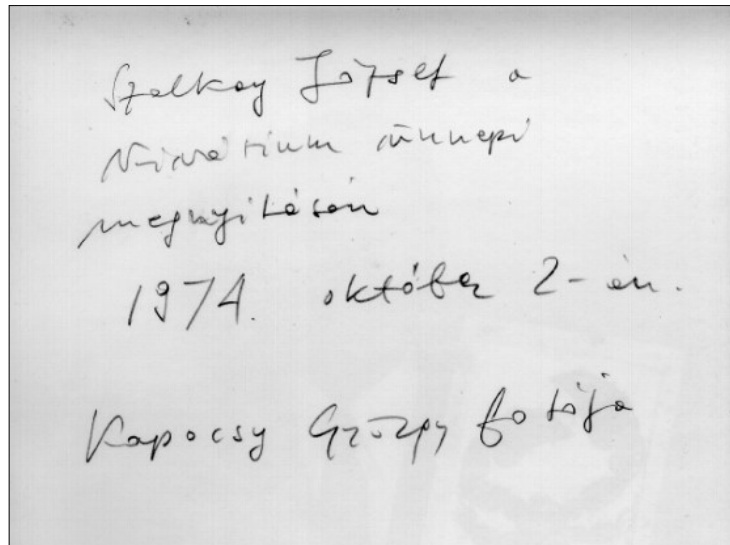 Szalkay József a
Vivárium ünnepi
megnyitásán
1974. október 2-án.
Kapocsy György fotója